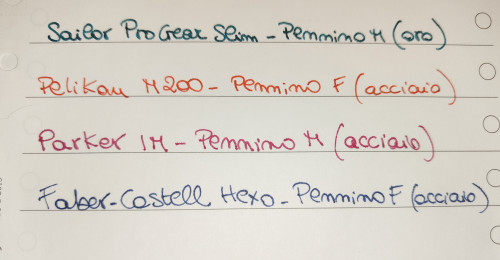 Sailor ProGear Slim - Pennino M (oro)
Pelikan M200 - Pennino F (acciaio)
Parker IM - Pennino M (acciaio)
Faber-Castell Hexo - Pennino F (acciaio)